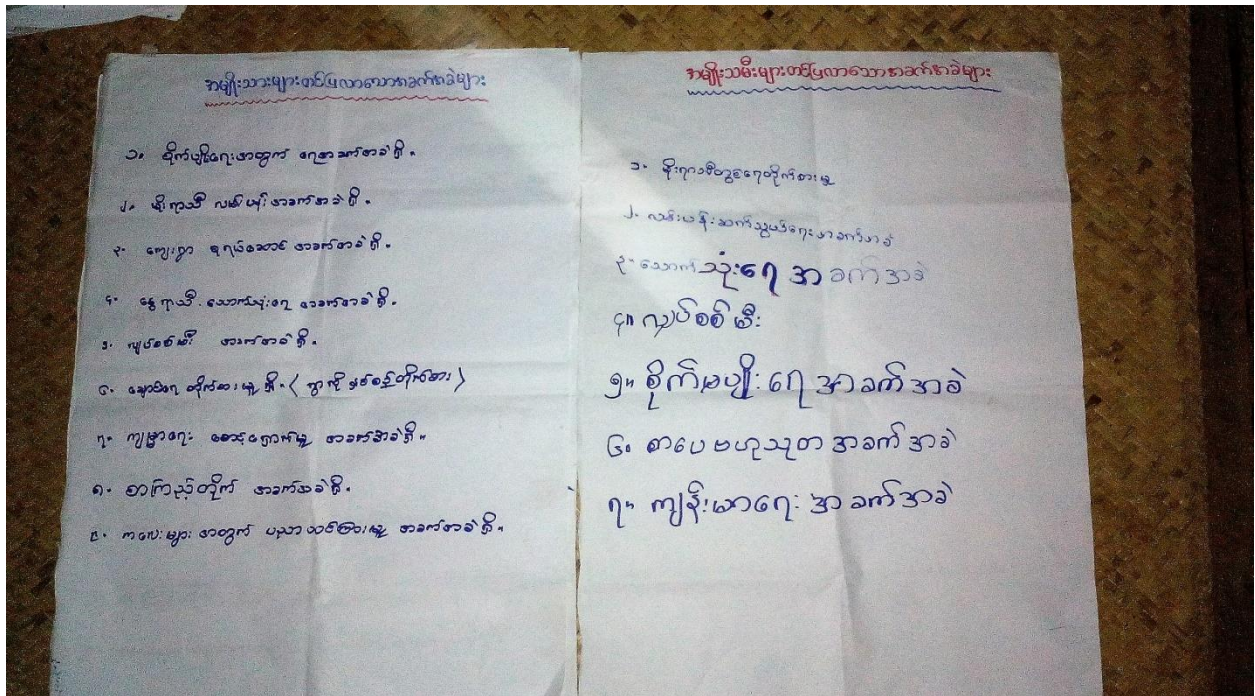 အမျိုးသားများတင်ပြလာသောအခက်အခဲများ
၁။ စိုက်ပျိုးရေးအတွက် ရေအခက်အခဲရှိ။
၂။ မိုးရာသီ လမ်းပန်းအခက်အခဲရှိ။
၃။ ကျေးရွာ စုရပ်ဆောင် အခက်အခဲရှိ။
၄။ နွေရာသီ သောက်သုံးရေ အခက်အခဲရှိ။
၅။ လျှပ်စစ်မီး အခက်အခဲရှိ။
၆။ ချောင်းရေ တိုက်စားမှုရှိ။ (ရွာကို ဖြတ်၍ တိုက်စား)
၇။ ကျန်းမာရေး စောင့်ရှောက်မှု အခက်အခဲရှိ။
၈။ စာကြည့်တိုက် အခက်အခဲရှိ။
၉။ ကလေးများအတွက် ပညာသင်ကြားမှု အခက်အခဲရှိ။
အမျိုးသမီးများတင်ပြလာသောအခက်အခဲများ
၁။ မိုးရာသီတွင်ရေတိုက်စားမှု
၂။ လမ်းပန်းဆက်သွယ်ရေးအခက်အခဲ
၃။ သောက်သုံးရေ အခက်အခဲ
၄။ လျှပ်စစ်မီး
၅။ စိုက်ပျိုးရေ အခက်အခဲ
၆။ စာပေဗဟုသုတ အခက်အခဲ
၇။ ကျန်းမာရေး အခက်အခဲ